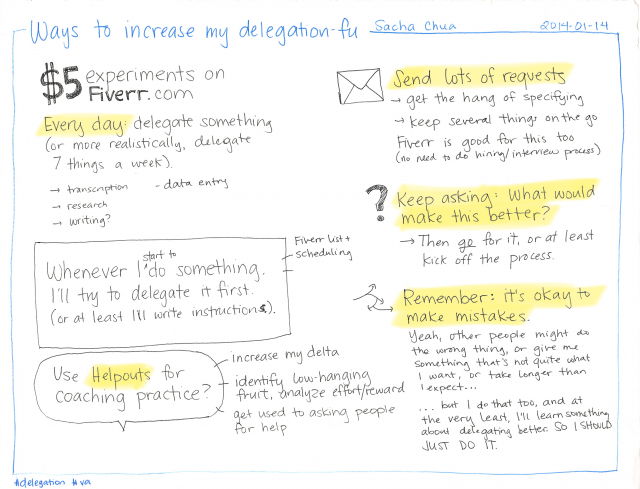 Ways to increase my delegation-fu
Sacha Chua
2014-01-14
$5 experiments on
Fiverr.com
Every day: delegate something
(or more realistically, delegate
7 things a week).
→ transcription - data entry
→ research
→ writing?
Whenever I start to do something.
I'll try to delegate it first.
(or at least I'll write instructions).
Fiverr list +
scheduling
Use Helpouts for
coaching practice?
increase my delta
identify low-hanging
fruit, analyze effort/reward
get used to asking people
for help
Send lots of requests
→ get the hang of specifying
→ keep several things on the go
Fiverr is good for this too
(no need to do hiring/interview process)
? Keep asking: What would
make this better?
→ Then go for it, or at least
kick off the process.
Remember: it's okay to
make mistakes.
Yeah, other people might do
the wrong thing, or give me
something that's not quite what
I want, or take longer than
I expect...
... but I do that too, and at
the very least, I'll learn something
about delegating better. So I SHOULD
JUST DO IT.
#delegation #va